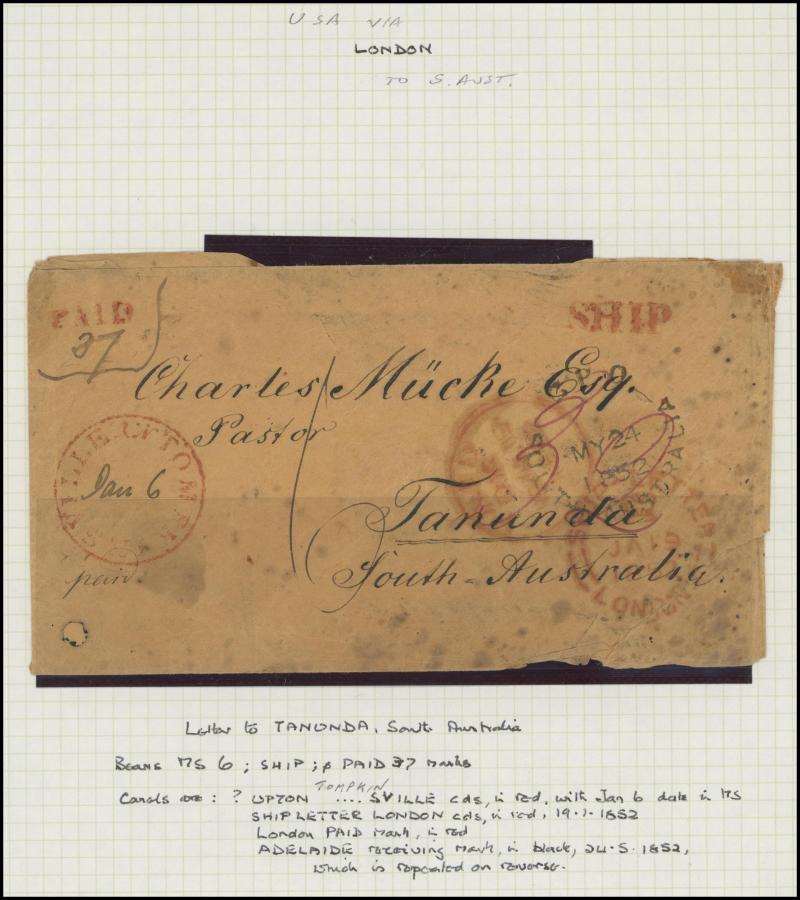 USA VIA
LONDON
TO S. AUST.
PAID
37
SHIP
Charles Mücke Esq.
Pastor
G.P.O.
MY 24
1852
SOUTH AUSTRALIA
Jan 6
SVILLE UPTON
paid
Tanunda
South-Australia.
Letter to TANUNDA, South Australia
Bears MS 6; SHIP; & PAID 37 marks
TOMPKIN
Canals are: ? UPTON .... SVILLE cds, in red, with Jan 6 date in MS
SHIP LETTER LONDON cds, in red, 19.1.1852
London PAID mark, in red
ADELAIDE receiving mark, in black, 24.5.1852,
which is repeated on reverse.